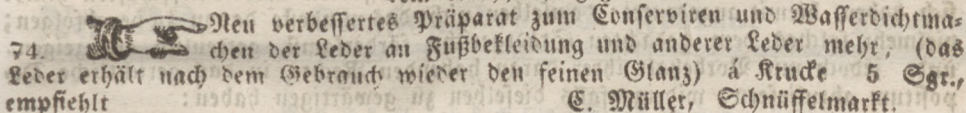 Neu verbessertes Präparat zum Conserviren und Wasserdichtma-
74. chen der Leder an Fußbekleidung und anderer Leder mehr, (das
Leder erhält nach dem Gebrauch wieder den feinen Glanz) á Krucke 5 Sgr.,
empfiehlt C. Müller, Schnüffelmarkt.